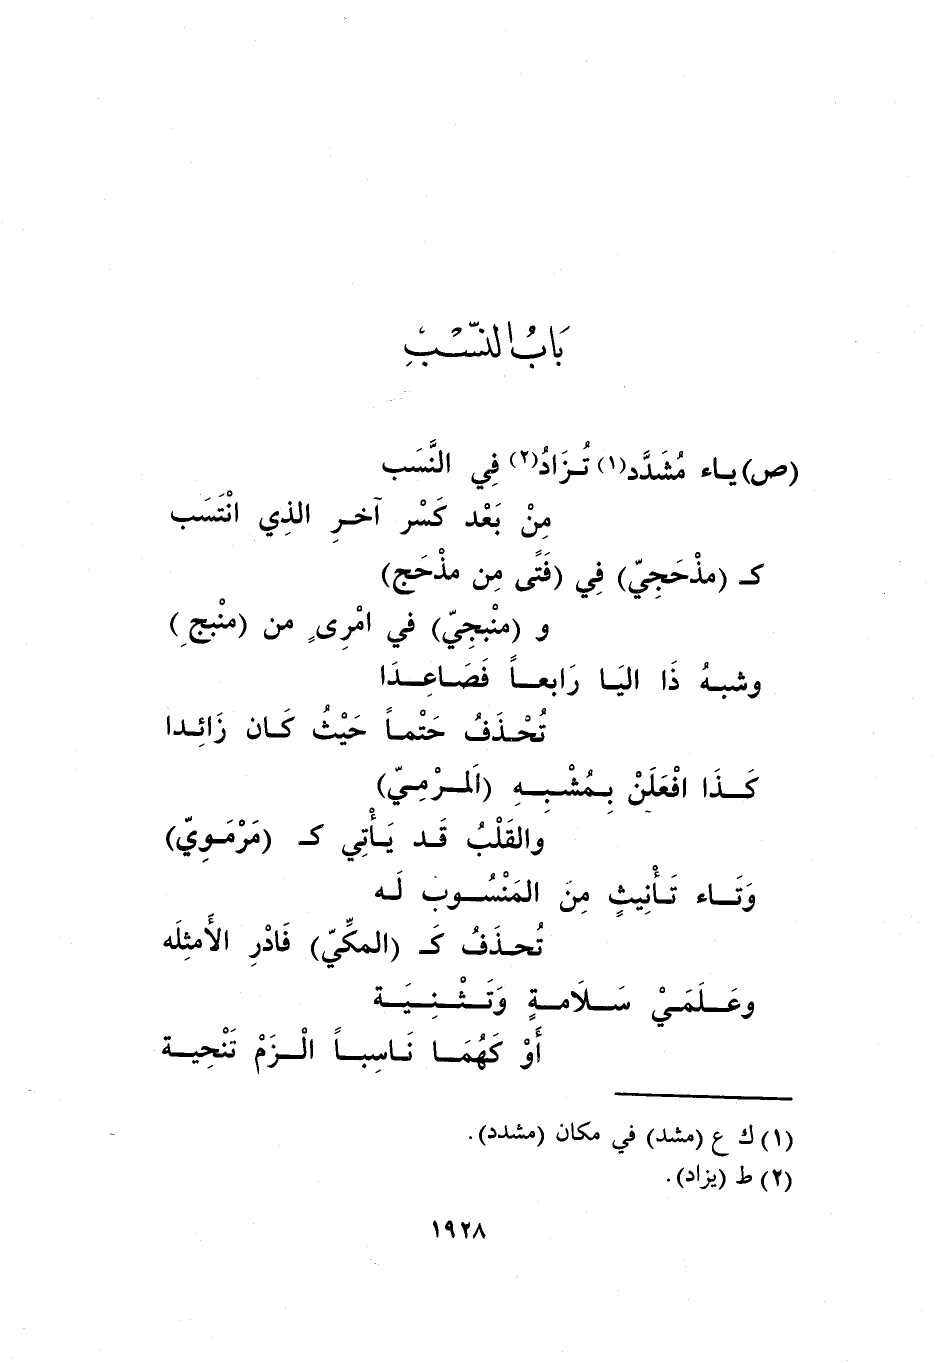 بَابُ النَّسَبِ
(ص) يـاء مُشَدَّد(١) تُـزَادُ(٢) فِي النَّسَب
مِنْ بَعْد كَسْر آخـرِ الذِي انْتَسَب
كـ (مذْحَجِيّ) فِي (فَتًى مِن مذْحَج)
و (منْبجِيّ) في امْرِىءٍ من (منْبجِ)
وشبـهُ ذَا اليَـا رَابعـاً فَصَـاعِـدَا
تُحْـذَفُ حَتْمـاً حَيْثُ كَـان زَائِـدا
كَـذَا افْعَلَنْ بِـمُشْـبِـهِ (اَلمـرْمِيّ)
والقَلْبُ قَـد يَـأْتِي كـ (مَرْمَـوِيّ)
وَتَـاء تَـأْنِيثٍ مِنَ المَنْسُـوب لَـه
تُحـذَفُ كَـ (المكِّيّ) فَادْرِ الأَمثِلَه
وعَـلَمَـيْ سَـلاَمـةٍ وَتَـثْـنِـيَـة
أَوْ كَهُمَـا نَـاسِبـاً الْـزَمْ تَنْحِيـة
(١) ك ع (مشد) في مكان (مشدد).
(٢) ط (يزاد).
١٩٢٨